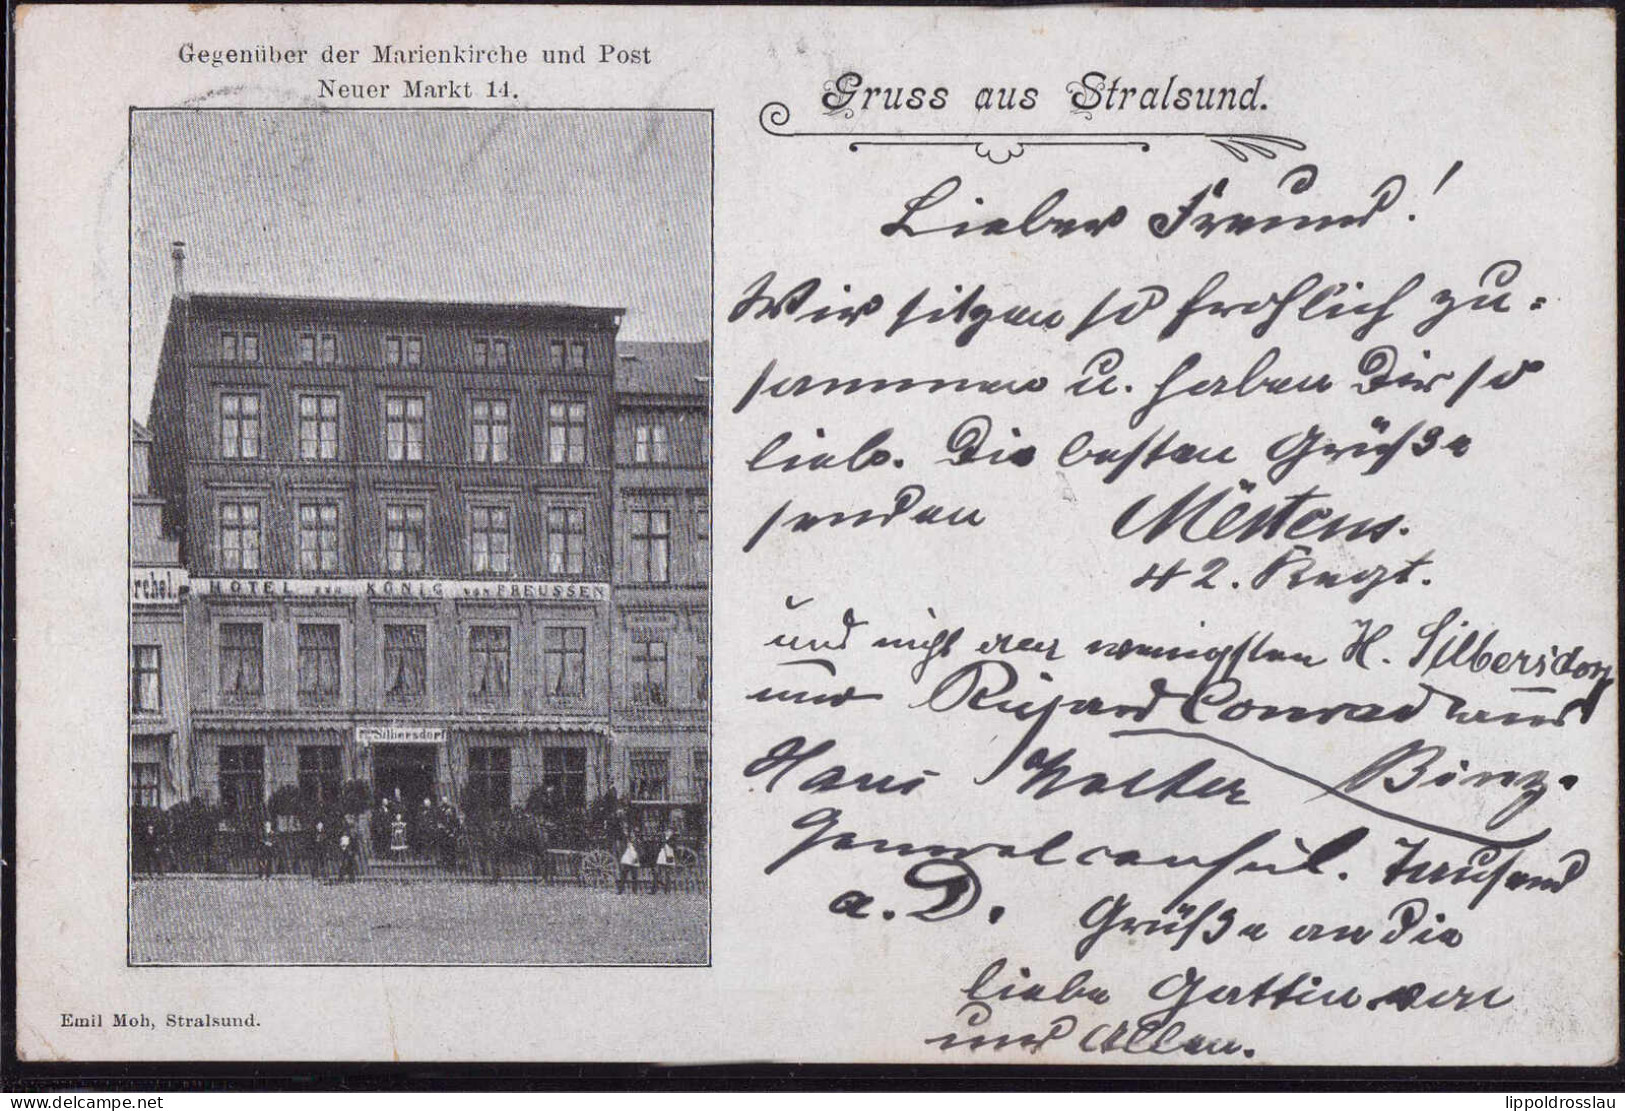 Gegenüber der Marienkirche und Post
Neuer Markt 14.
Gruss aus Stralsund.
Lieber Freund!
Wir sitzen so fröhlich zu-
sammen u. haben Dir so
lieb. Die besten Grüße
senden Mertens.
42. Regt.
und nicht am wenigsten H. Silbersdorf
und Richard Conrad und
Hans Walter Binz.
Generalconsul. Tausend
a. D. Grüße an die
liebe Gattin von
uns Allen.
rchel.
HOTEL ZUM KÖNIG VON PREUSSEN
Silbersdorf
Emil Moh, Stralsund.
www.delcampe.net
lippoldrosslau